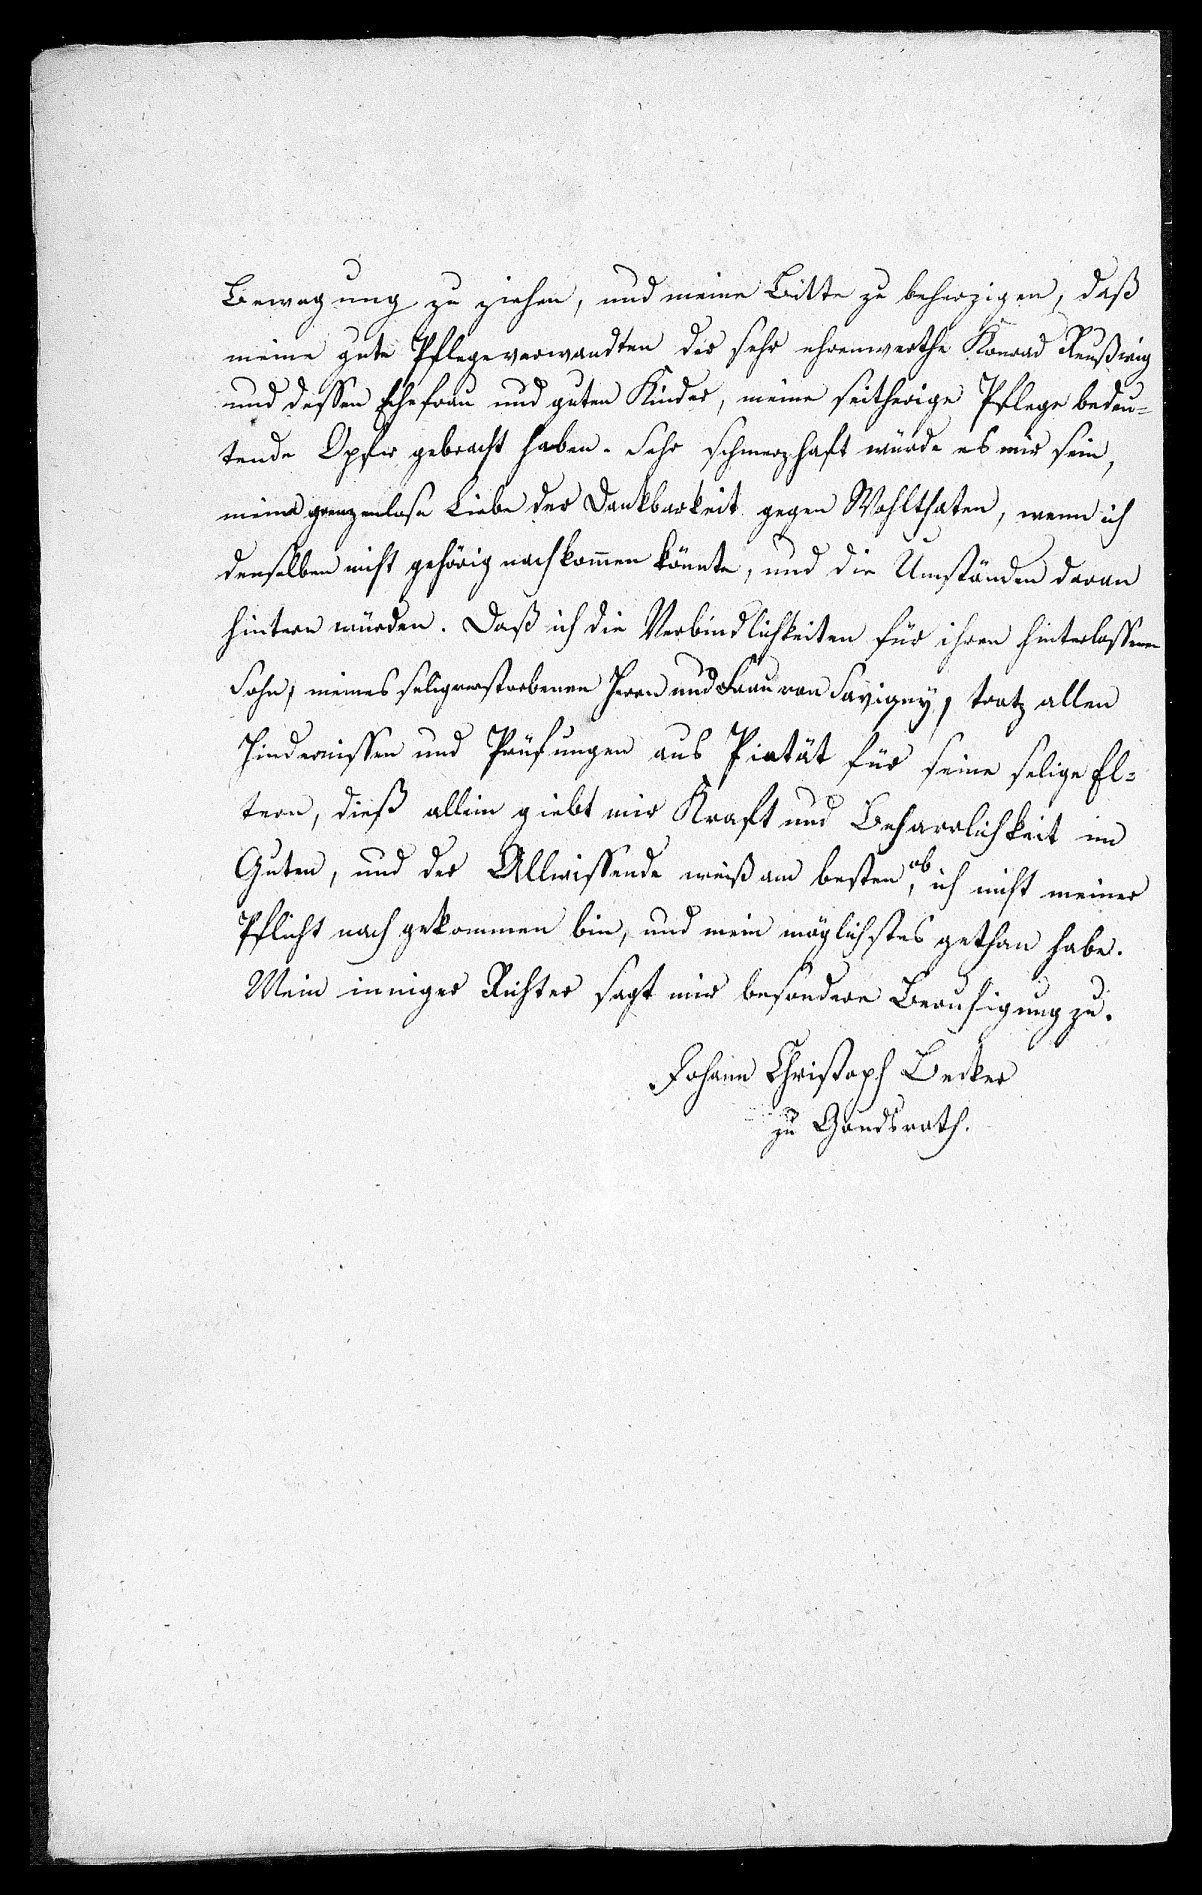 Bewegung zu ziehen, und meine Bitte zu beherzigen, daß
meine gute Pflegeverwandten der sehr ehrenwerthe Konrad Reußwig
und dessen Ehefrau und guten Kinder, meine seitherige Pflege bedeu-
tende Opfer gebracht haben. Sehr schmerzhaft würde es mir sein,
meine grenzenlose Liebe der Dankbarkeit gegen Wohlthaten, wenn ich
denselben nicht gehörig nachkommen könnte, und die Umständen daran
hintern würden. Daß ich die Verbindlichkeiten für ihren hinterlassenen
Sohn, meines seligverstorbenen Herrn und Frau von Savigny, trotz allen
Hindernissen und Prüfungen aus Pietät für seine selige El-
tern, dieß allein giebt mir Kraft und Beharrlichkeit im
Guten, und der Allwissende weiß am besten, ob ich nicht meiner
Pflicht nach gekommen bin, und mein möglichstes gethan habe.
Mein inniger Richter sagt mir besondere Beruhigung zu.
Johann Christoph Becker
zu Gondsroth.